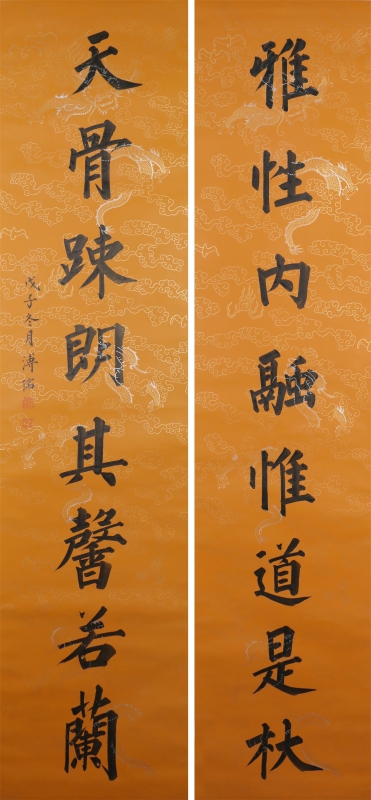 雅性内融惟道是杖
天骨踈朗其馨若蘭
戊子冬月溥佐